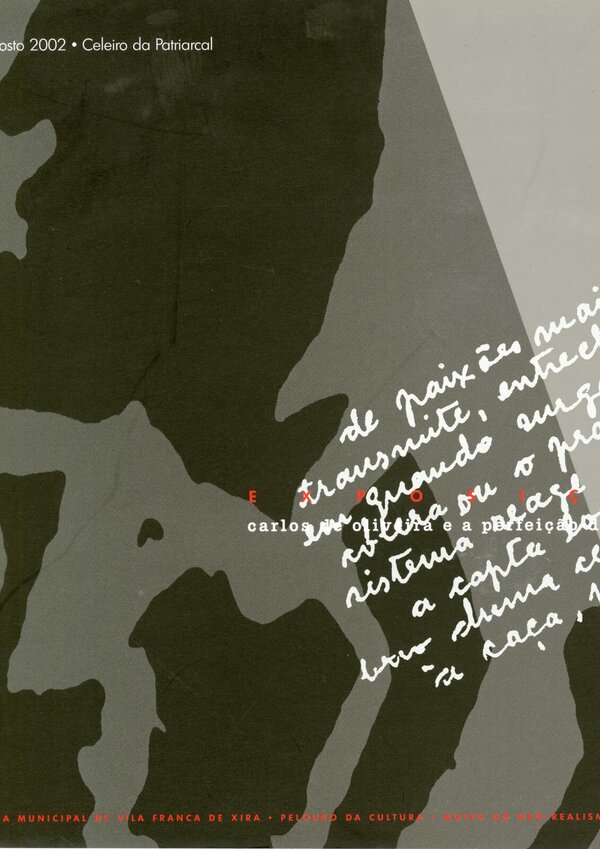 osto 2002 • Celeiro da Patriarcal
de paixões mai
transmite, entrech
em quando surge
E X P O S I Ç
carlos de oliveira e a perfeição d
ou o pro
sistema reage
a capta
duma ce
à caça,
A MUNICIPAL DE VILA FRANCA DE XIRA • PELOURO DA CULTURA • MUSEU DO NEO REALISM